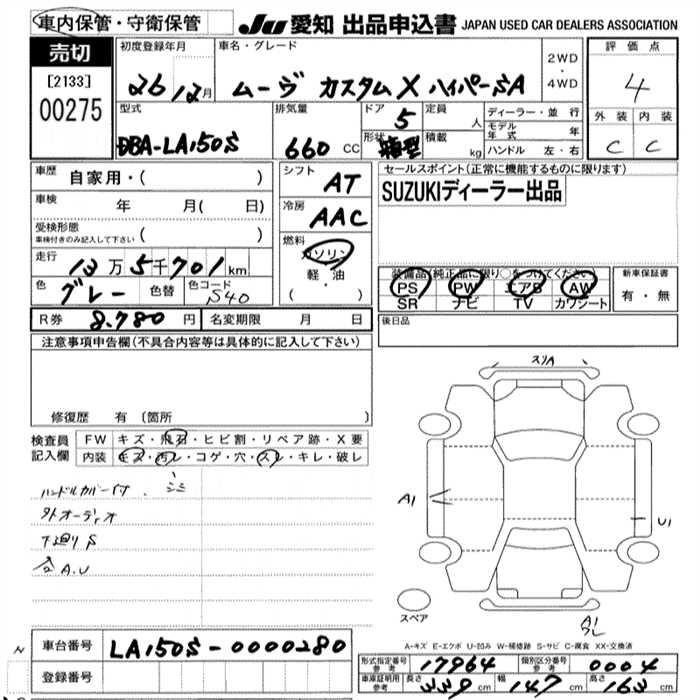 車内保管・守衛保管 JU 愛知 出品申込書 JAPAN USED CAR DEALERS ASSOCIATION
売切 初度登録年月 車名・グレード 2WD・4WD 評価点
[2133] 26 12月 ムーヴ カスタムX ハイパーSA 4
00275 型式 排気量 ドア 5 定員 人 ディーラー・並行 外装 内装
モデル年式 年
DBA-LA150S 660 CC 形状 箱型 積載 kg ハンドル 左・右 C C
車歴 自家用・( ) シフト AT セールスポイント(正常に機能するものに限ります)
車検 年 月( 日) 冷房 AAC SUZUKIディーラー出品
受検形態 ( )
車検付きのみ記入して下さい
走行 13万5千701km 燃料 ガソリン 軽・油 ( ) 装備品(純正品に限り○をつけてください) 新車保証書
色 グレー 色替 色コード S40 PS PW エアB AW 有・無
SR ナビ TV カワシート
R券 8,780円 名変期限 月 日 後日品
注意事項申告欄(不具合内容等は具体的に記入して下さい)
修復歴 有 〔箇所 〕
検査員記入欄 FW キズ・飛石・ヒビ割・リペア跡・X要
内装 キズ・汚レ・コゲ・穴・スレ・キレ・破レ
ハンドルカバー付
外オーディオ
下廻りS
A.U
スリA
A1
U1
A1
スペア
A-キズ E-エクボ U-凹み W-補修跡 S-サビ C-腐食 XX-交換済
車台番号 LA150S-0000280 形式指定番号 参考 17964 類別区分番号 参考 0004
登録番号 車庫証明用 参考 長さ 339cm 幅 147cm 高さ 163cm